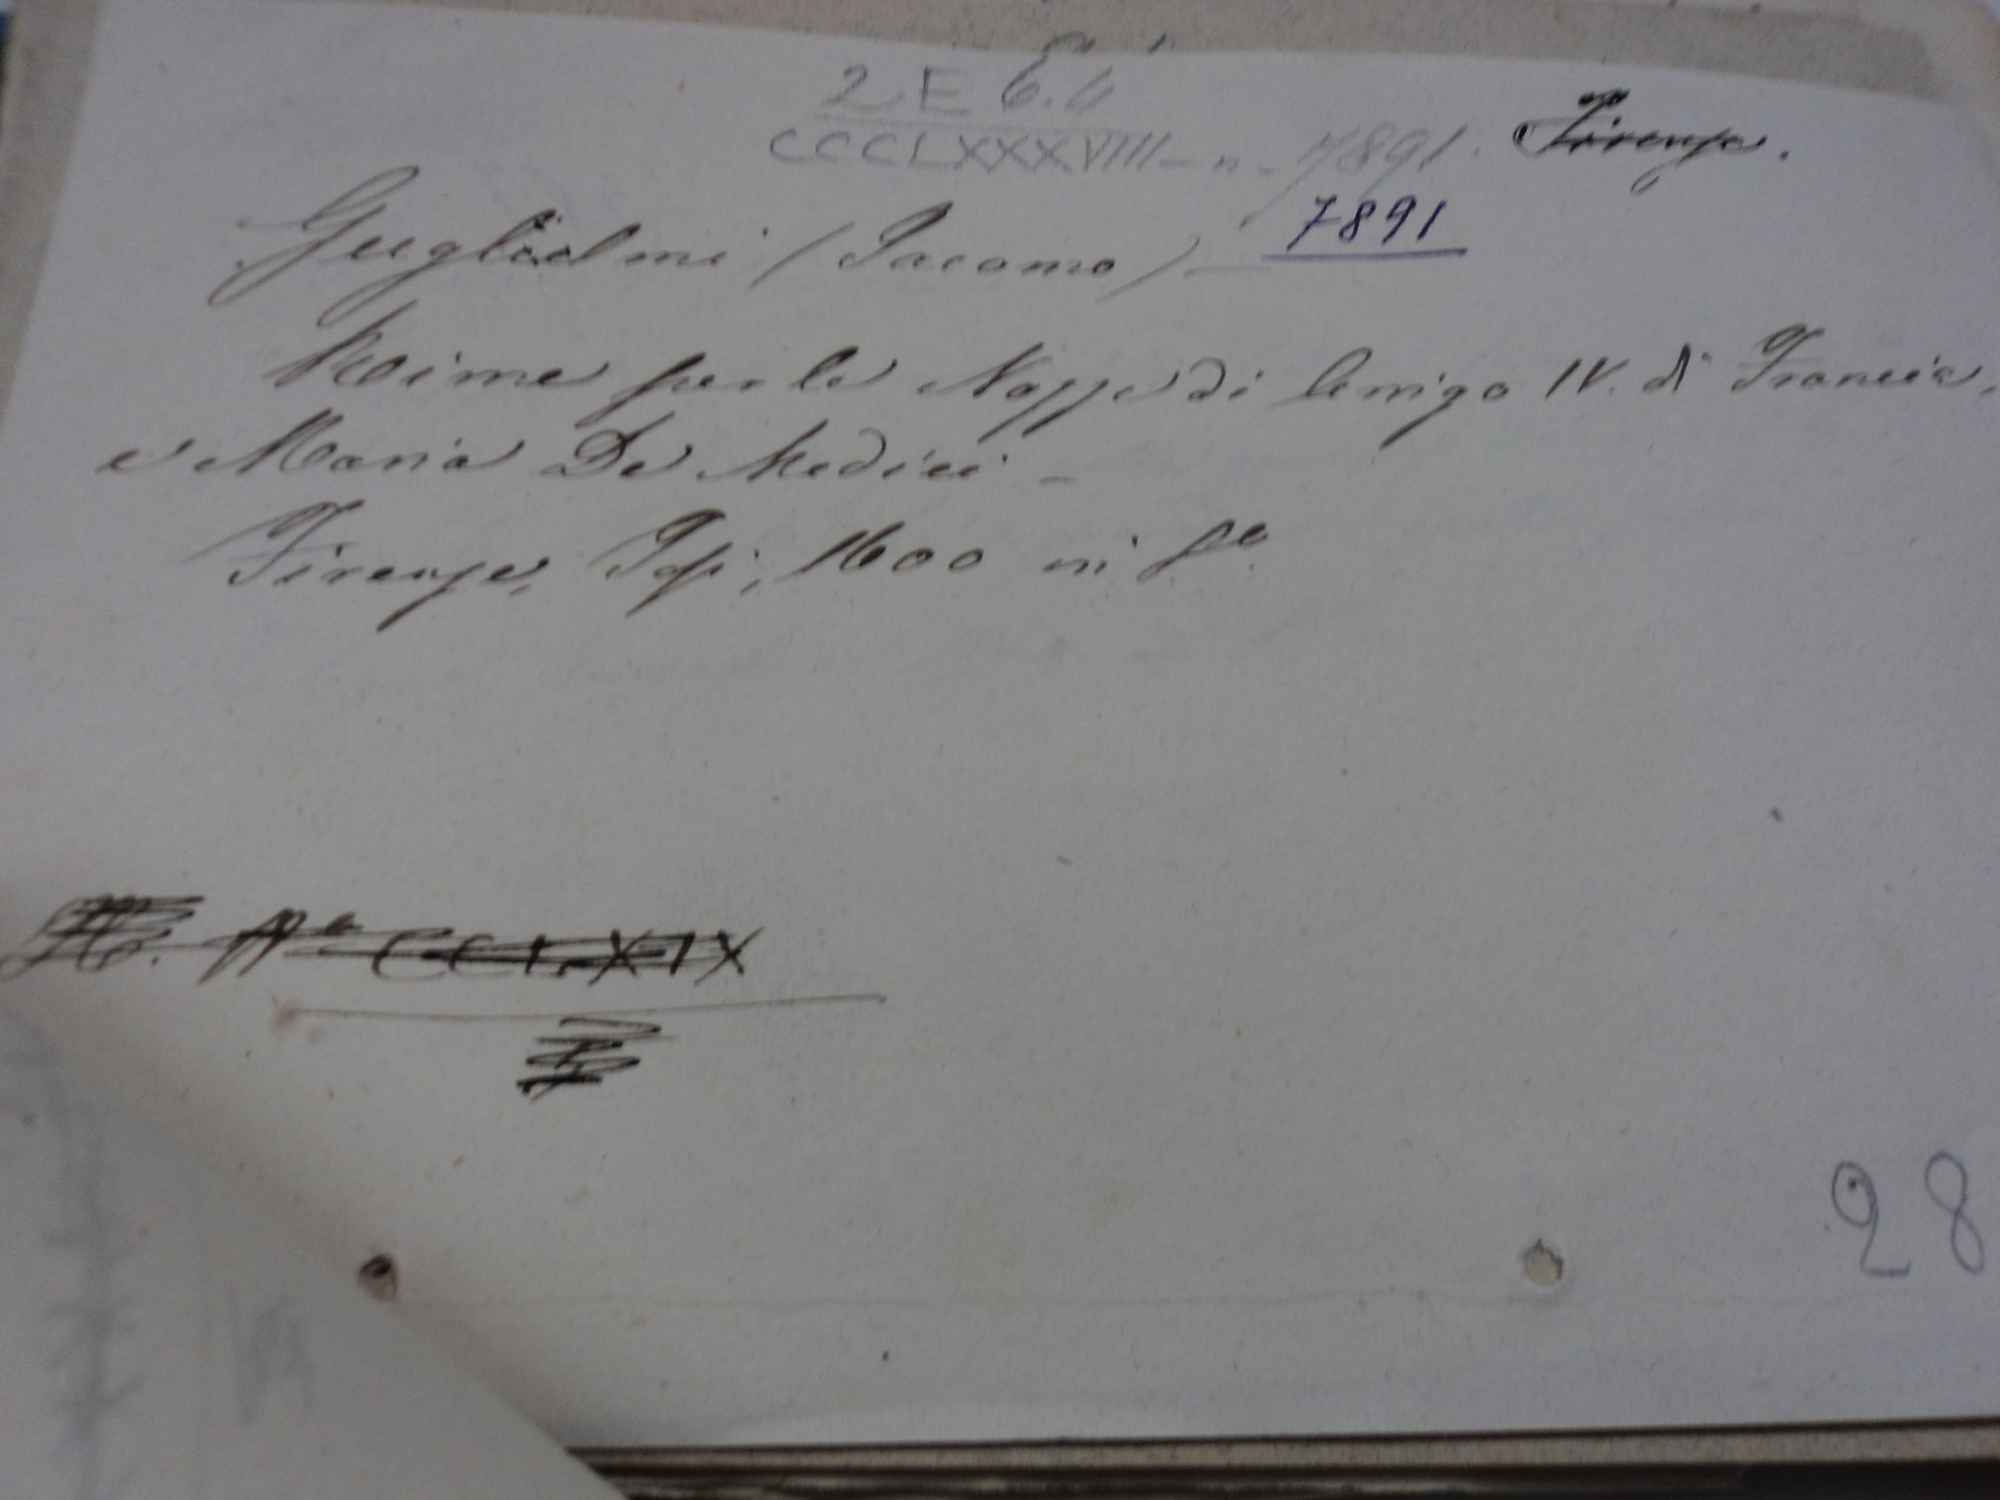 2 E 6.6
CCCLXXXVIIII - n. 7891. Firenze.
Guglielmi (Jacomo) - 7891
Rime per le Nozze di Enrigo IV. di Francia,
e Maria De Medici -
Firenze, 1600 in
Aº CCLXIX
28